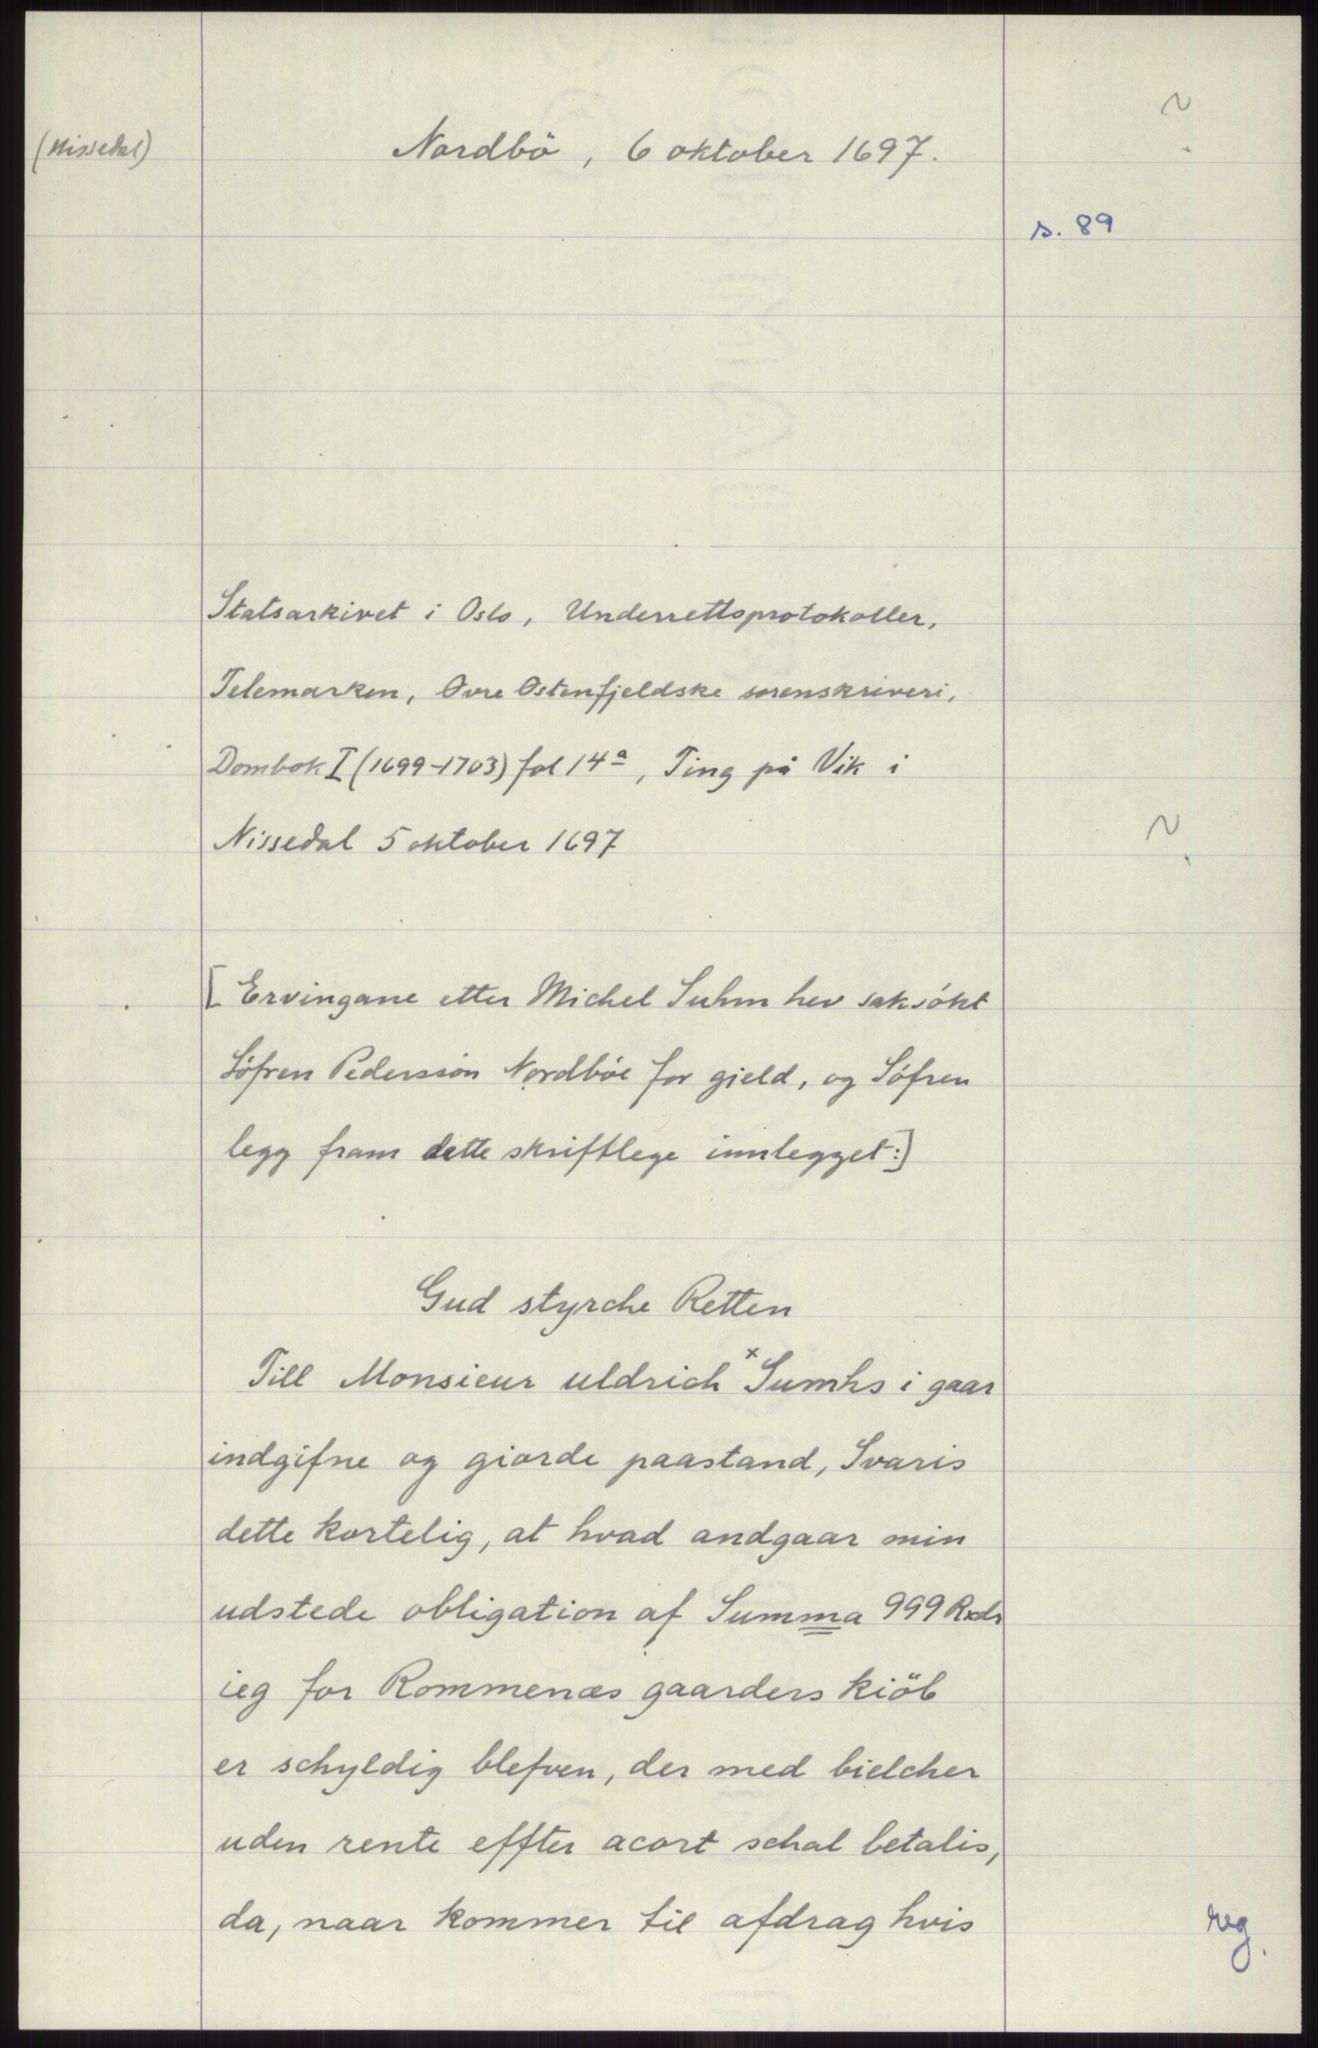 (Nissedal)
Nordbö, 6 oktober 1697.
s. 89
Statsarkivet i Oslo, Underrettsprotokoller,
Telemarken, Øvre Østenfjeldske sorenskriveri,
Dombok I (1699-1703) fol 14a, Ting på Vik i
Nissedal 5 oktober 1697
[Ervingane etter Michel Suhm hev saksökt
Söfren Pedersson Nordböe for gield, og Söfren
legg fram dette skriftlege innlegget:]
Gud styrche Retten
Till Monsieur uldrich x Sumhs i gaar
indgifne og giorde paastand, Svaris
dette kortelig, at hvad andgaar min
udstede obligation af Summa 999 Rxdr
ieg for Rommenæs gaarders kiöb
er schyldig blefven, der med bielcher
uden rente effter acort schal betalis,
da, naar kommer til afdrag hvis
reg.